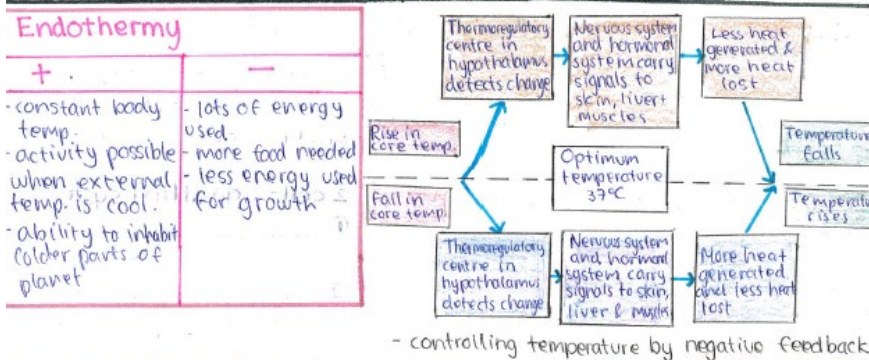 Endothermy
+
-
- constant body
temp.
- activity possible
when external
temp. is cool.
- ability to inhabit
colder parts of
planet
- lots of energy
used
- more food needed
- less energy used
for growth
Rise in
core temp.
Fall in
core temp.
Thermoregulatory
centre in
hypothalamus
detects change
Nervous system
and hormonal
system carry
signals to
skin, liver +
muscles
Less heat
generated &
more heat
lost
Temperature
falls
Optimum
temperature
37°C
Thermoregulatory
centre in
hypothalamus
detects change
Nervous system
and hormonal
system carry
signals to skin,
liver & muscles
More heat
generated
and less heat
lost
Temperatu
rises
- controlling temperature by negative feedback